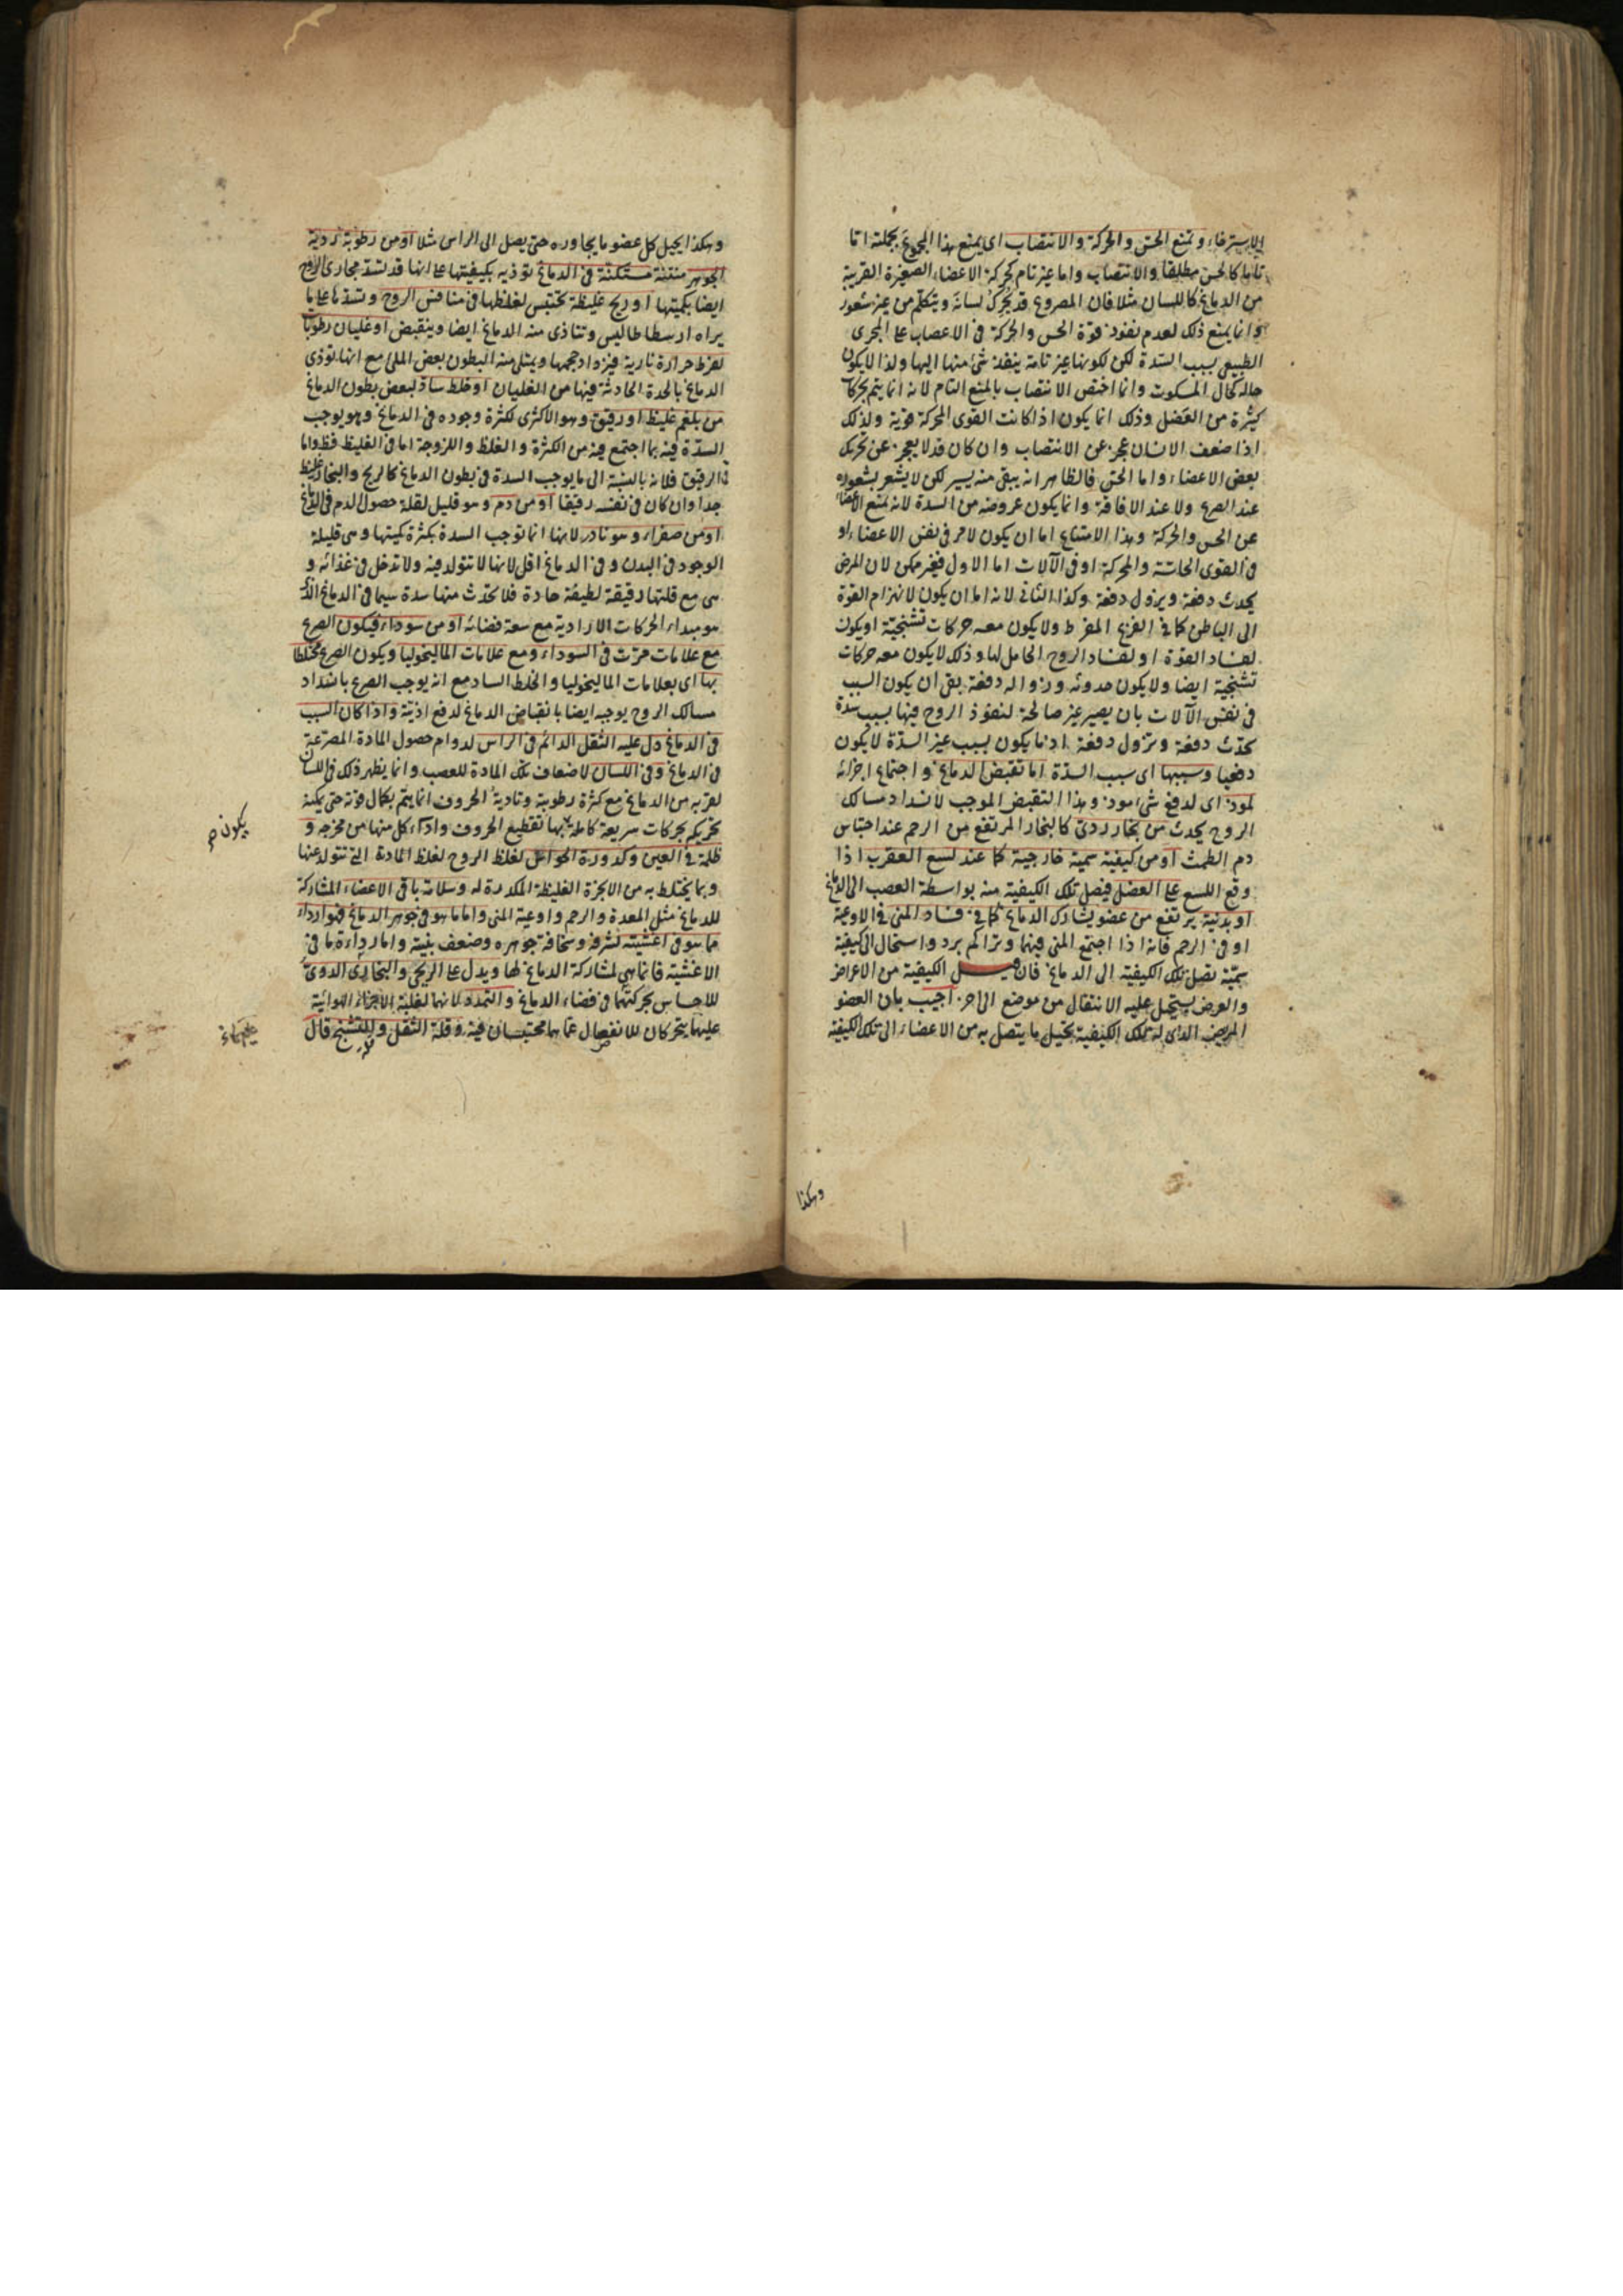 الاسترخاء وتمنع الحس والحركة والانتصاب اى يمنع هذا المجموع بجملته اما
تاما كالحس مطلقا والانتصاب واما غير تام كحركة الاعضاء الصغيرة القريبة
من الدماغ كاللسان مثلا فان المصروع قد يحرك لسانه ويتكلم من غير شعور
وانما يمنع ذلك لعدم نفوذ قوة الحس والحركة فى الاعصاب على المجرى
الطبيعى بسبب السدة لكن لكونها غير تامة ينفذ شئ منها اليها ولذا لا يكون
حاله كحال المسكوت وانما اختص الانتصاب بالمنع التام لانه انما يتم بحركات
كثيرة من العضل وذلك انما يكون اذا كانت القوى المحركة قوية ولذلك
اذا ضعف الانسان عجز عن الانتصاب وان كان قد لا يعجز عن تحريك
بعض الاعضاء واما الحس فالظاهر انه يبقى منه يسير لكن لا يشعر بشعوره
عند الصرع ولا عند الافاقة وانما يكون عروضه من السدة لانه تمنع الاعضاء
عن الحس والحركة وهذا الامتناع اما ان يكون لامر فى نفس الاعضاء او
فى القوى الحاسة والمحركة او فى الآلات اما الاول فغير ممكن لان المرض
يحدث دفعة ويزول دفعة وكذا الثانى لانه اما ان يكون لانهزام القوة
الى الباطن كما فى الفزع المفرط ولا يكون معه حركات تشنجية او يكون
لفساد القوة او لفساد الروح الحامل لها وذلك لا يكون معه حركات
تشنجية ايضا ولا يكون حدوثه وزواله دفعة بقى ان يكون السبب
فى نفس الآلات بان يصير غير صالحة لنفوذ الروح فيها بسبب سدة
تحدث دفعة وتزول دفعة اذ ما يكون بسبب غير السدة لا يكون
دفعيا وسببها اى سبب السدة اما تقبض الدماغ واجتماع اجزائه
لموذ اى لدفع شئ موذ وهذا التقبض الموجب لانسداد مسالك
الروح يحدث من بخار ردى كالبخار المرتفع من الرحم عند احتباس
دم الطمث او من كيفية سمية خارجية كما عند لسع العقرب اذا
وقع اللسع على العضل فيصل تلك الكيفية منه بواسطة العصب الى الدماغ
او بدنية يرتفع من عضو يشارك الدماغ كما فى فساد المنى فى الاوعية
او فى الرحم فانه اذا اجتمع المنى فيهما وتراكم برد واستحال الى كيفية
سمية تصل تلك الكيفية الى الدماغ فان قيل الكيفية من الاعراض
والعرض يستحيل عليه الانتقال من موضع الى آخر اجيب بان العضو
المريض الذى له تلك الكيفية يحيل ما يتصل به من الاعضاء الى تلك الكيفية
وهكذا
وهكذا يحيل كل عضو ما يجاوره حتى يصل الى الراس مثلا او من رطوبة ردية
الجوهر منتنة مستكنة فى الدماغ توذيه بكيفيتها على انها قد تسد مجارى الروح
ايضا بكميتها او ريح غليظة تحتبس لغلظها فى منافس الروح وتسدها على ما
يراه ارسطاطاليس وتتاذى منه الدماغ ايضا وينقبض او غليان رطوبات
لفرط حرارة نارية فيزداد حجمها ويمتلى منه البطون بعض الملئ مع انها توذى
الدماغ بالحدة الحادثة فيها من الغليان او خلط ساد لبعض بطون الدماغ
من بلغم غليظ او رقيق وهو الاكثرى لكثرة وجوده فى الدماغ وهو يوجب
السدة فيه بما اجتمع فيه من الكثرة والغلظ واللزوجة اما فى الغليظ فظ واما
فى الرقيق فلانه بالنسبة الى ما يوجب السدة فى بطون الدماغ كالريح والبخار غليظ
جدا وان كان فى نفسه رقيقا او من دم وهو قليل لقلة حصول الدم فى الدماغ
او من صفراء وهو نادر لانها انما توجب السدة بكثرة كميتها وهى قليلة
الوجود فى البدن وفى الدماغ اقل لانها لا تتولد فيه ولا تدخل فى غذائه و
هى مع قلتها رقيقة لطيفة حادة فلا تحدث منها سدة سيما فى الدماغ الذى
هو مبداء الحركات الارادية مع سعة فضائه او من سوداء فيكون الصرع
مع علامات مرت فى السوداء ومع علامات الماليخوليا ويكون الصرع مختلطا
بها اى بعلامات الماليخوليا والخلط الساد مع انه يوجب الصرع بانسداد
مسالك الروح يوجبه ايضا بانقباض الدماغ لدفع اذيته واذا كان السبب
فى الدماغ دل عليه الثقل الدائم فى الراس لدوام حصول المادة المصرعة
فى الدماغ وفى اللسان لاضعاف تلك المادة للعصب وانما يظهر ذلك فى اللسان
لقربه من الدماغ مع كثرة رطوبته وتادية الحروف انما يتم بكمال قوته حتى يمكنه
تحريكه بحركات سريعة كاملة بها تقطيع الحروف واداء كل منها من مخرجه و
يكون صح
ظلمة فى العين وكدورة الحواس لغلظ الروح لغلظ المادة التى تتولد عنها
وبما يختلط به من الابخرة الغليظة المكدرة له وسلامة باقى الاعضاء المشاركة
للدماغ مثل المعدة والرحم واوعية المنى واما ما هو فى جوهر الدماغ فهو اردا
مما هو فى اغشيته لشرفه وسخافة جوهره وضعف بنيته واما رداءة ما فى
الاغشية فانما هى لمشاركة الدماغ لها ويدل على الريحى والبخارى الدوى
للاحساس بحركتهما فى فضاء الدماغ والتمدد لانهما لغلبة الاجزاء الهوائية
عليهما يتحركان للانفصال عما هما محتبسان فيه وقلة الثقل والتشنج قال